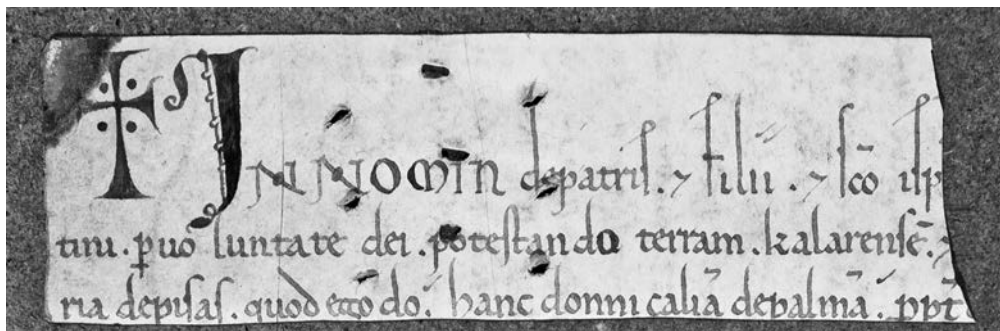 IN NOMIN depatris. ⁊ filii. ⁊ sc̄o isp
tim. ꝑuo luntate dei. potestando terram. kalarensē. ⁊
ria depisas. quod ego do. hanc donnicaliā depalmā. ꝓpt̄